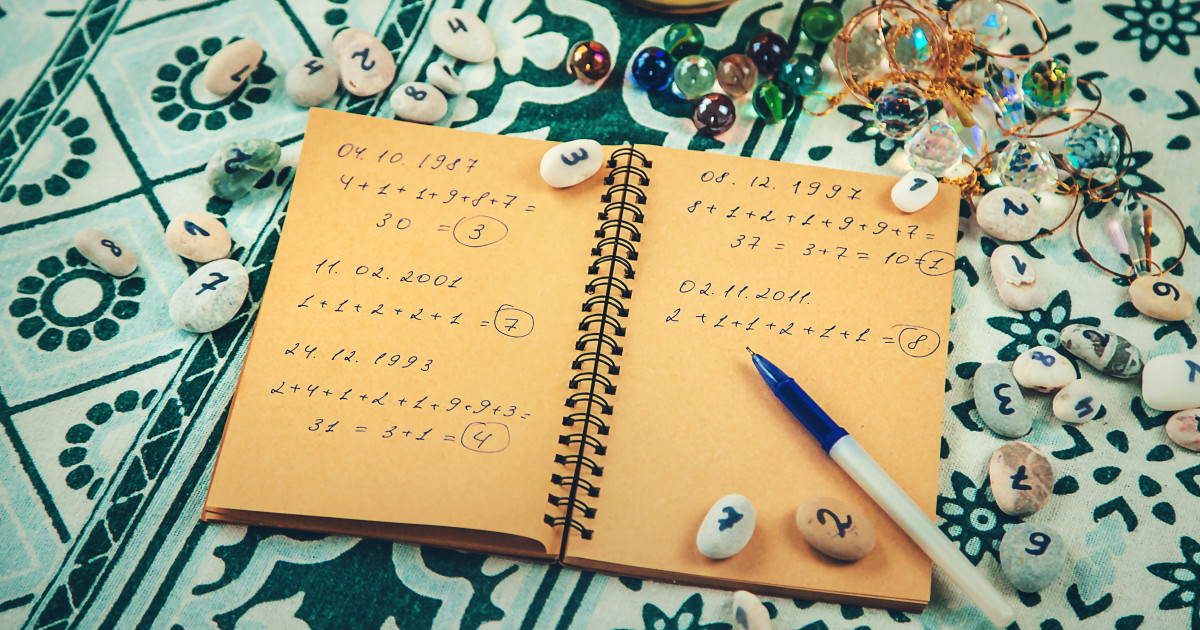 04.10.1987
4+1+1+9+8+7=
30 = 3
11.02.2001
1+1+2+2+1 = 7
24.12.1993
2+4+1+2+1+9+9+3=
31 = 3+1 = 4
08.12.1997
8+1+2+1+9+9+7=
37 = 3+7 = 10=1
02.11.2011.
2+1+1+2+1+1 = 8
4
1
4
2
8
3
2
1
8
1
7
2
1
6
8
3
4
7
6
7
2